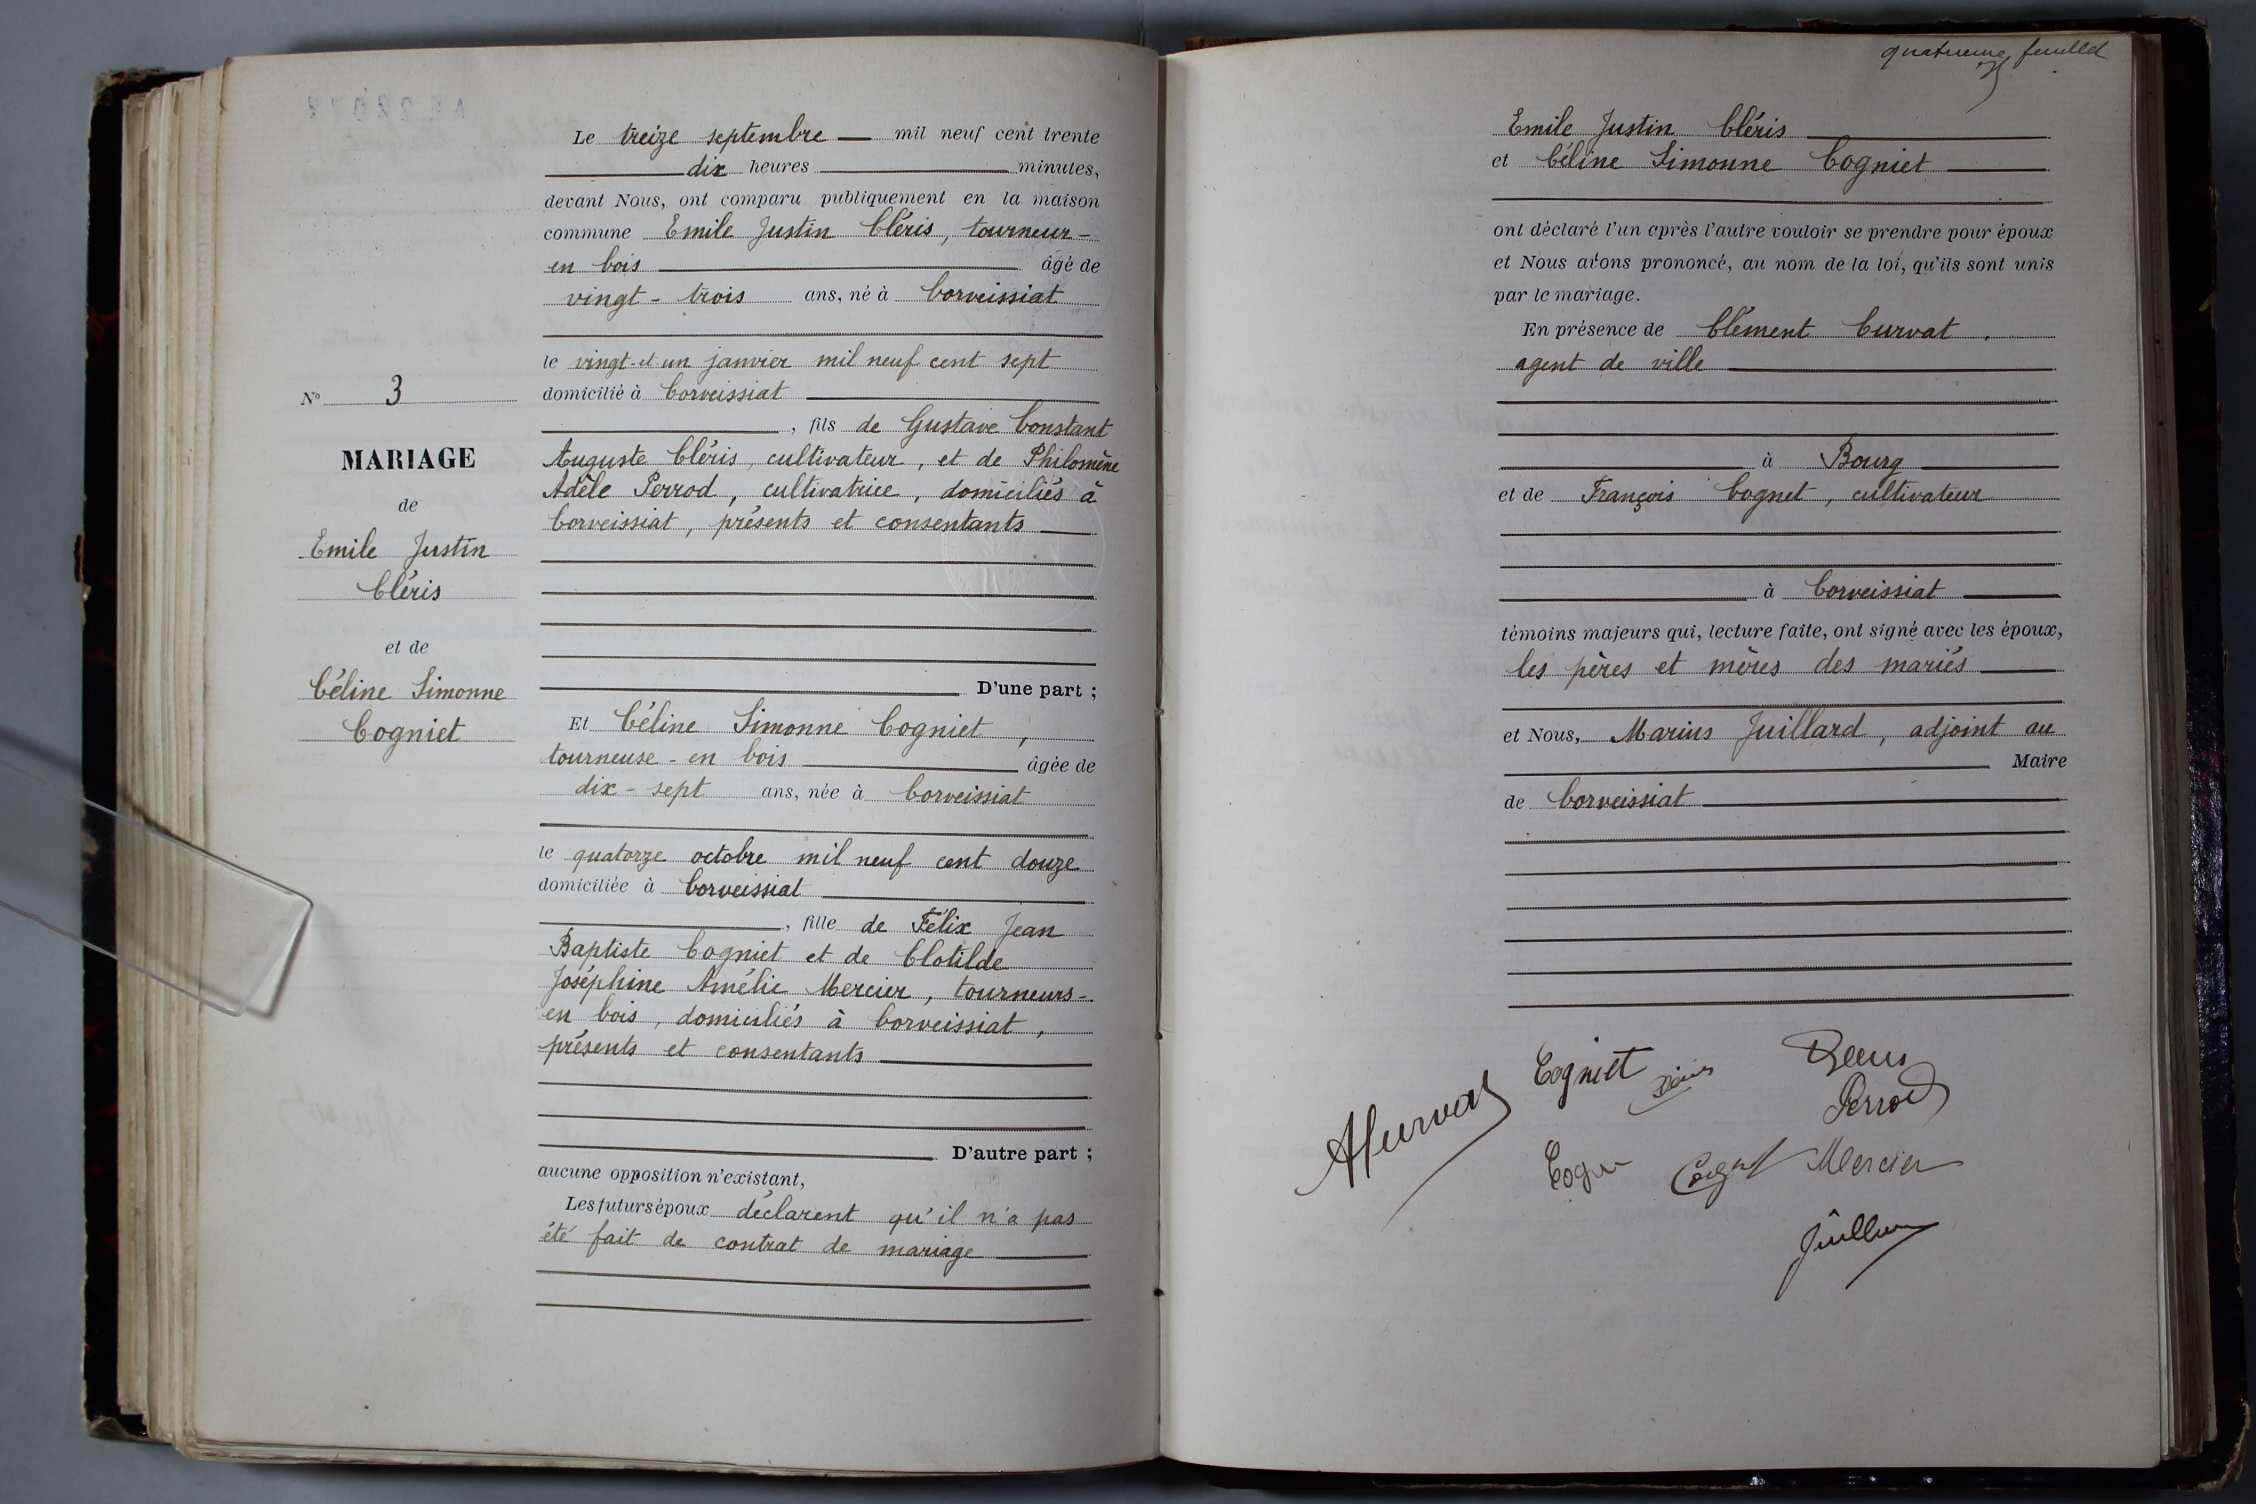 Le treize septembre mil neuf cent trente
dix heures minutes,
devant Nous, ont comparu publiquement en la maison
commune Emile Justin Cléris, tourneur-
en bois âgé de
vingt-trois ans, né à Corveissiat
le vingt-et-un janvier mil neuf cent sept
domicilié à Corveissiat
, fils de Gustave Constant
Auguste Cléris, cultivateur, et de Philomène
Adèle Perrod, cultivatrice, domiciliés à
Corveissiat, présents et consentants
D'une part ;
N° 3
MARIAGE
de
Emile Justin
Cléris
et de
Céline Simonne
Cogniet
Et Céline Simonne Cogniet,
tourneuse-en bois âgée de
dix-sept ans, née à Corveissiat
le quatorze octobre mil neuf cent douze
domiciliée à Corveissiat
, fille de Félix Jean
Baptiste Cogniet et de Clotilde
Joséphine Amélie Mercier, tourneurs-
en bois, domiciliés à Corveissiat,
présents et consentants
D'autre part ;
aucune opposition n'existant,
Les futurs époux déclarent qu'il n'a pas
été fait de contrat de mariage
quatrième feuillet
Emile Justin Cléris
et Céline Simonne Cogniet
ont déclaré l'un après l'autre vouloir se prendre pour époux
et Nous avons prononcé, au nom de la loi, qu'ils sont unis
par le mariage.
En présence de Clément Curvat,
agent de ville
à Bourg
et de François Cognet, cultivateur
à Corveissiat
témoins majeurs qui, lecture faite, ont signé avec les époux,
les pères et mères des mariés
et Nous, Marius Juillard, adjoint au
Maire
de Corveissiat
Cogniet
Perrod
Mercier